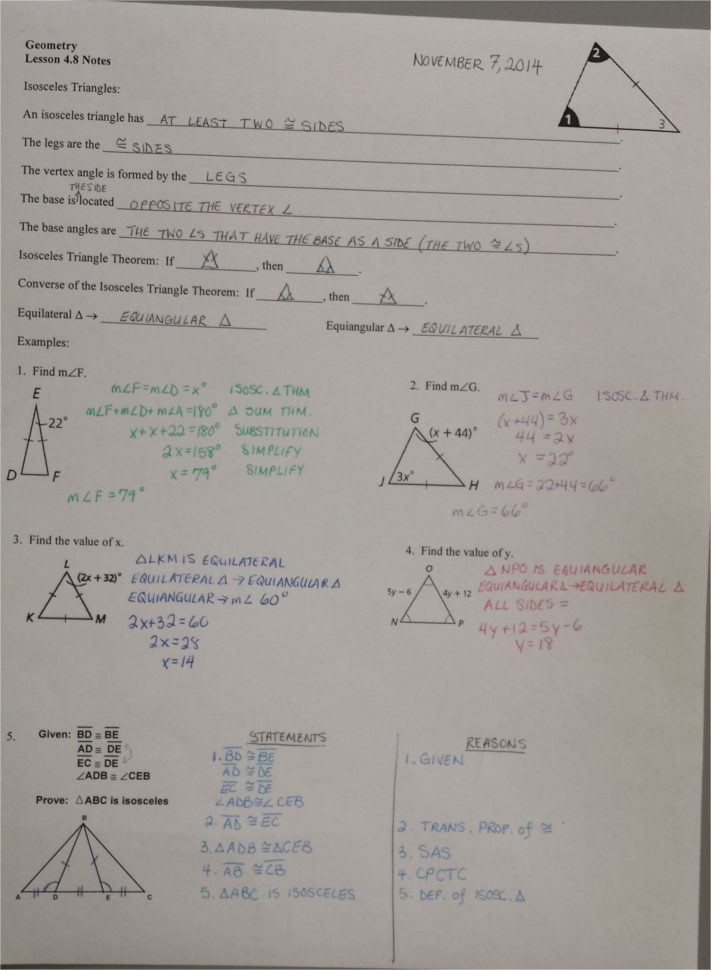 Geometry
Lesson 4.8 Notes
NOVEMBER 7, 2014
2
1
3
Isosceles Triangles:
An isosceles triangle has AT LEAST TWO ≅ SIDES.
The legs are the ≅ SIDES.
The vertex angle is formed by the LEGS.
THE SIDE
The base is located OPPOSITE THE VERTEX ∠.
The base angles are THE TWO ∠S THAT HAVE THE BASE AS A SIDE (THE TWO ≅ ∠S).
Isosceles Triangle Theorem: If ____, then ____.
Converse of the Isosceles Triangle Theorem: If ____, then ____.
Equilateral Δ → EQUIANGULAR Δ
Equiangular Δ → EQUILATERAL Δ
Examples:
1. Find m∠F.
E
22°
D
F
m∠F = m∠D = x° ISOSC. Δ THM
m∠F + m∠D + m∠A = 180° Δ SUM THM.
x + x + 22 = 180° SUBSTITUTION
2x = 158° SIMPLIFY
x = 79° SIMPLIFY
m∠F = 79°
2. Find m∠G.
G
(x + 44)°
3x°
J
H
m∠J = m∠G ISOSC. Δ THM.
(x+44) = 3x
44 = 2x
x = 22°
m∠G = 22+44 = 66°
m∠G = 66°
3. Find the value of x.
L
(2x + 32)°
K
M
ΔLKM IS EQUILATERAL
EQUILATERAL Δ → EQUIANGULAR Δ
EQUIANGULAR → m∠ 60°
2x+32 = 60
2x = 28
x = 14
4. Find the value of y.
O
5y – 6
4y + 12
N
P
Δ NPO IS EQUIANGULAR
EQUIANGULAR Δ → EQUILATERAL Δ
ALL SIDES =
4y + 12 = 5y - 6
y = 18
5.
Given: BD ≅ BE
AD ≅ DE
EC ≅ DE
∠ADB ≅ ∠CEB
Prove: △ABC is isosceles
B
A
D
E
C
STATEMENTS
1. BD ≅ BE
AD ≅ DE
EC ≅ DE
∠ADB ≅ ∠CEB
2. AD ≅ EC
3. ΔADB ≅ ΔCEB
4. AB ≅ CB
5. ΔABC IS ISOSCELES
REASONS
1. GIVEN
2. TRANS. PROP. of ≅
3. SAS
4. CPCTC
5. DEF. of ISOSC. Δ